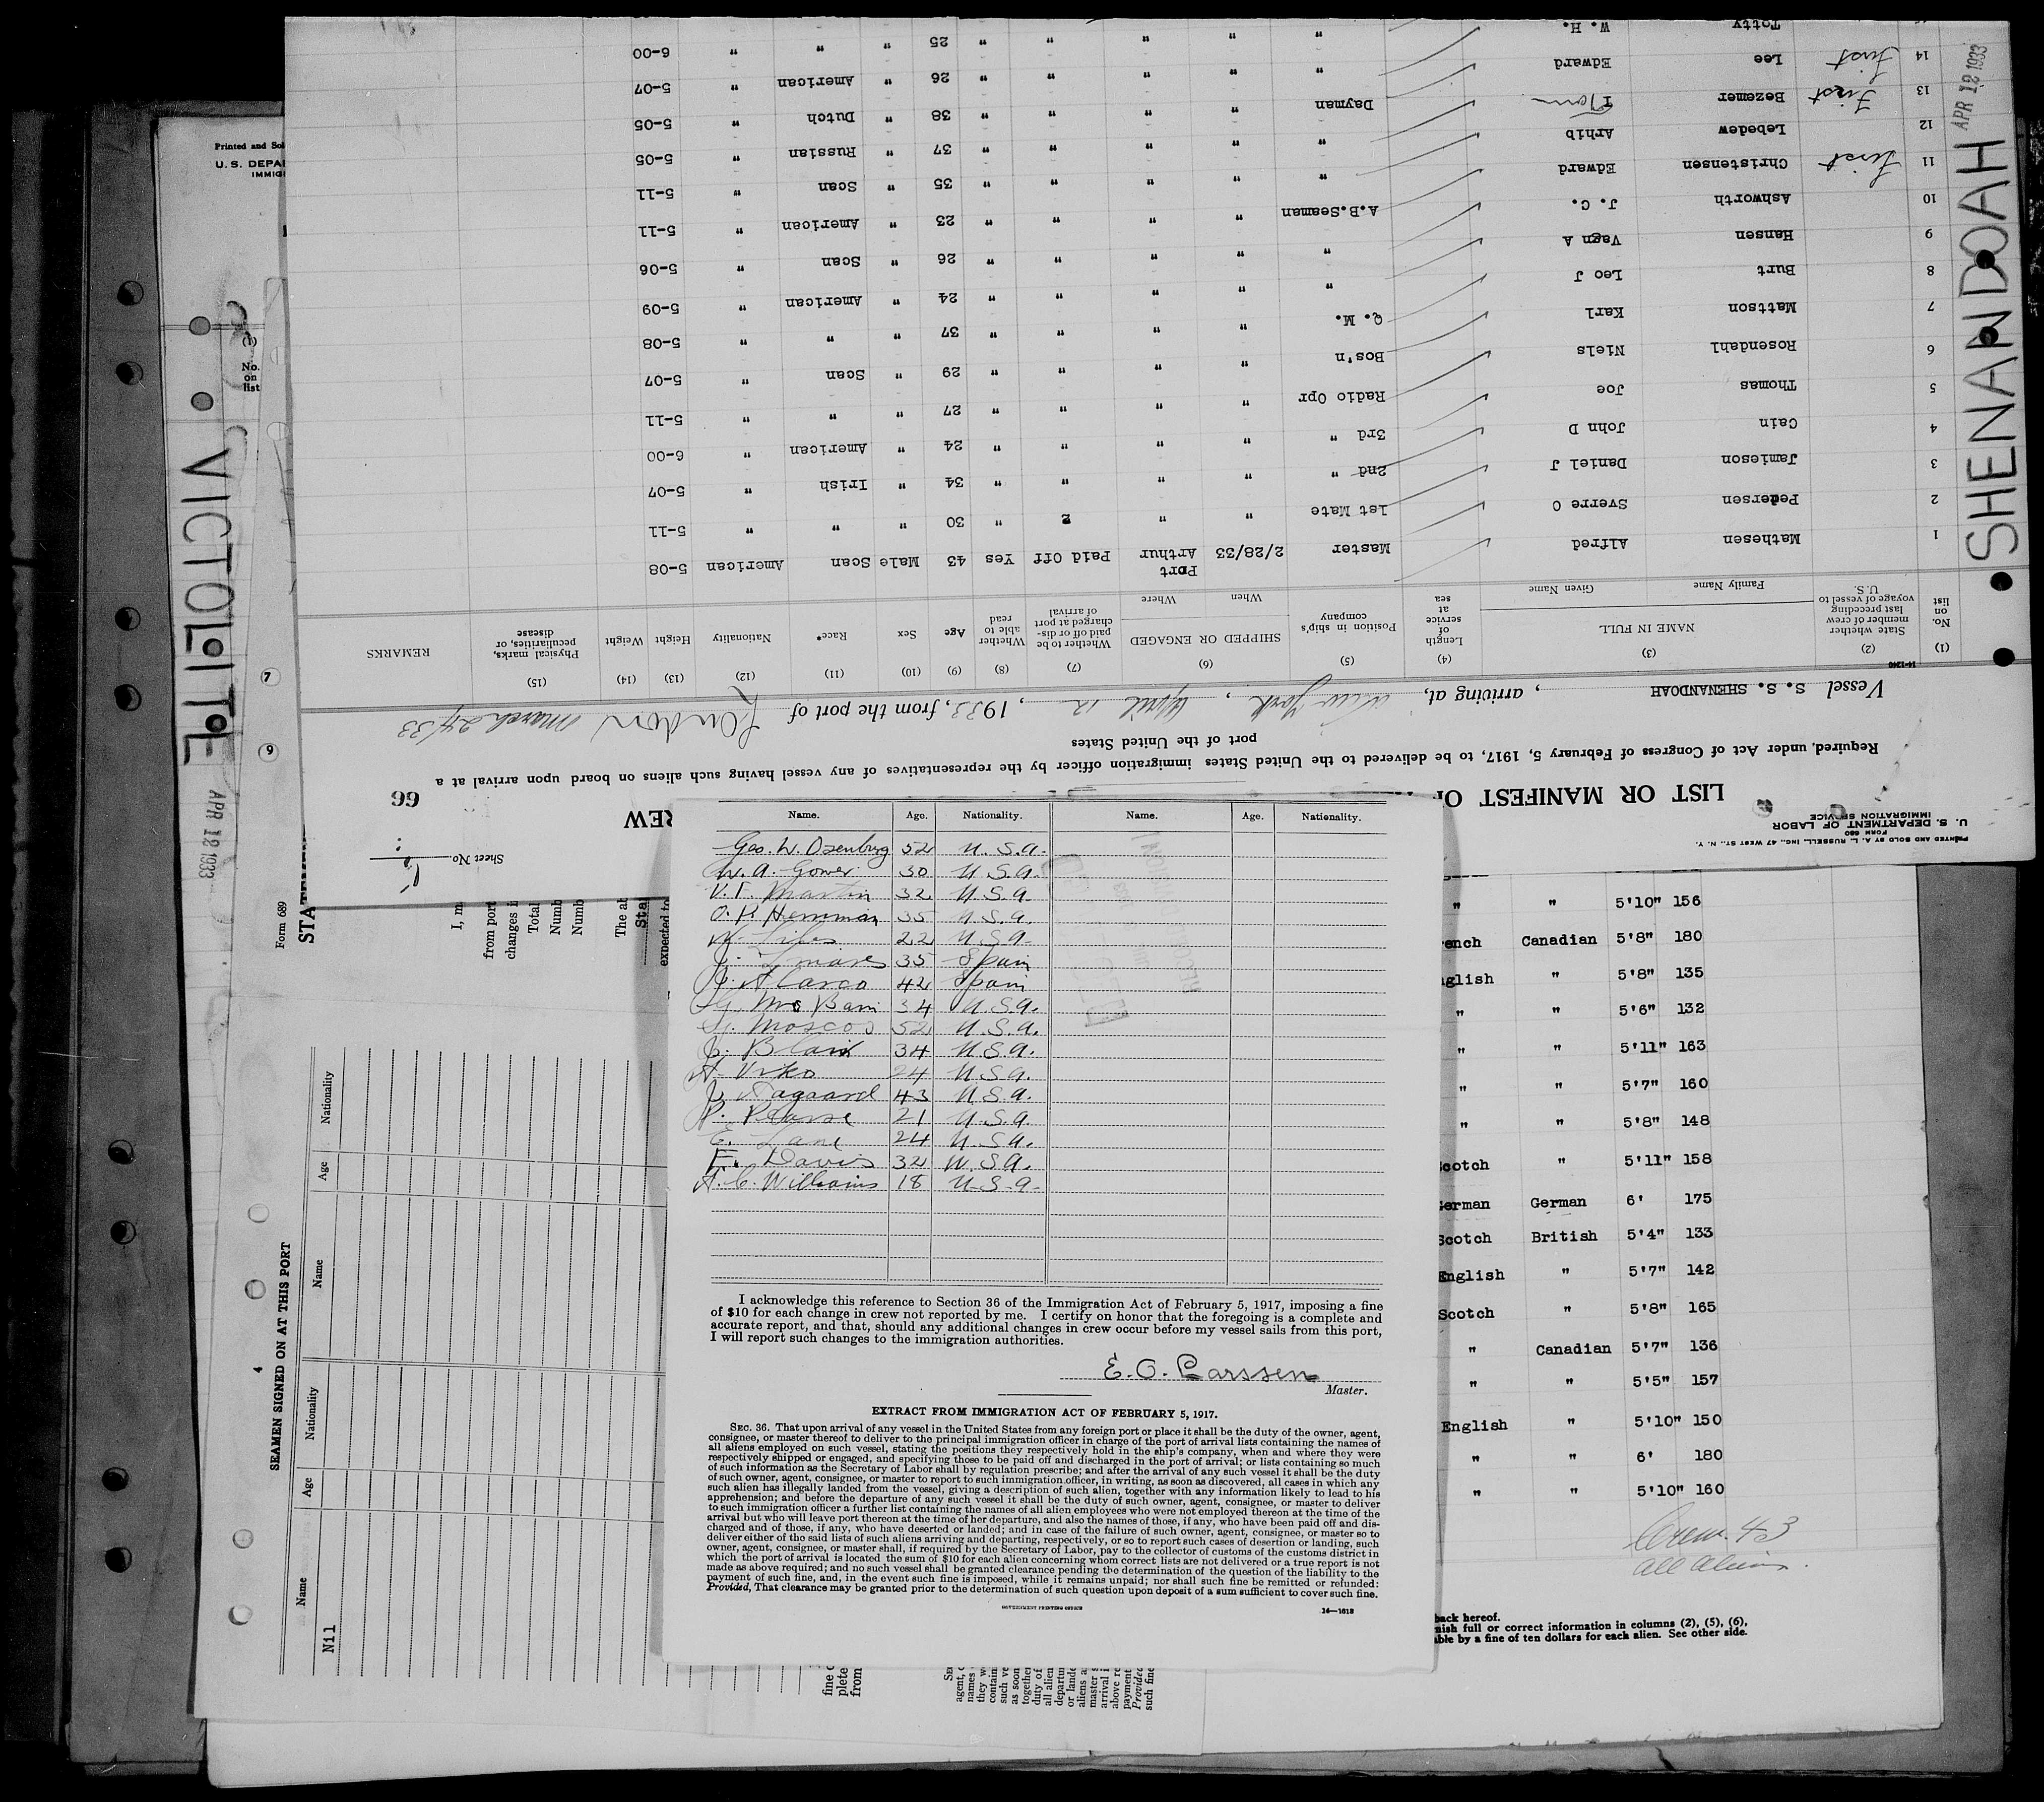 U. S. DEPARTMENT OF LABOR
IMMIGRATION SERVICE
FORM 680
PRINTED AND SOLD BY A. L. RUSSELL, INC., 47 WEST ST., N. Y.
LIST OR MANIFEST OF
REW
66
Sheet No.
Required, under Act of Congress of February 5, 1917, to be delivered to the United States immigration officer by the representatives of any vessel having such aliens on board upon arrival at a
port of the United States
Vessel S. S. SHENANDOAH, arriving at, New York, April 12, 1933, from the port of London March 24/33
14-1240
(1) (2) (3) (4) (5) (6) (7) (8) (9) (10) (11) (12) (13) (14) (15)
No. on list
State whether member of crew last preceding voyage of vessel to U.S.
NAME IN FULL
Family Name Given Name
Length of service at sea
Position in ship's company
SHIPPED OR ENGAGED
When Where
Whether to be paid off or discharged at port of arrival
Whether able to read
Age Sex Race* Nationality Height Weight
Physical marks, peculiarities, or disease
REMARKS
1 Mathesen Alfred Master 2/28/33 Port Arthur Paid Off Yes 43 Male Scan American 5-08
2 Pedersen Sverre O 1st Mate " " " " 30 " " " 5-11
3 Jamieson Daniel J 2nd " " " " " 34 " Irish " 5-07
4 Cain John D 3rd " " " " " 24 " American " 6-00
5 Thomas Joe Radio Opr " " " " 27 " " " 5-11
6 Rosendahl Niels Bos'n " " " " 29 " Scan " 5-07
7 Mattson Karl Q. M. " " " " 37 " " " 5-08
8 Burt Leo J " " " " " 24 " American " 5-09
9 Hansen Vagn A " " " " " 26 " Scan " 5-06
10 Ashworth J. C. A.B.Seaman " " " " 23 " American " 5-11
11 First Christensen Edward " " " " " 35 " Scan " 5-11
12 Lebedew Arhib " " " " " 37 " Russian " 5-05
13 First Bezemer Dayman " " " " 38 " Dutch " 5-05
14 First Lee Edward " " " " " 26 " American " 5-07
Totty W. H. " " " " " 25 " " " 6-00
SHENANDOAH
APR 12 1933
VICTOLITE
APR 12 1933
Printed and Sol
U. S. DEPA
IMMIG
No.
on
list
7
9
Form 689
STATEM
I, m
from port
changes i
Total
Numb
Numb
The at
Sta
expected to
4
SEAMEN SIGNED ON AT THIS PORT
Name Age Nationality Name Age Nationality
Nil
fine o
plete
from
SE
agent, o
names
they w
contain
such ve
as soon
together
duty of
all alien
departu
or lande
aliens a
master s
arrival i
above re
payment
Provided
such fine
Name. Age. Nationality. Name. Age. Nationality.
Geo. W. Ozenburg 52 U.S.A.
W. A. Gower 30 U.S.A.
V. T. Martin 32 U.S.A.
35 U.S.A.
22 U.S.A.
35 Spain
42 Spain
34 U.S.A.
Moscos 52 U.S.A.
J. Blair 34 U.S.A.
24 U.S.A.
43 U.S.A.
P. 21 U.S.A.
E. Lane 24 U.S.A.
F. Davis 32 U.S.A.
A. C. Williams 18 U.S.A.
I acknowledge this reference to Section 36 of the Immigration Act of February 5, 1917, imposing a fine
of $10 for each change in crew not reported by me. I certify on honor that the foregoing is a complete and
accurate report, and that, should any additional changes in crew occur before my vessel sails from this port,
I will report such changes to the immigration authorities.
E. O. Larssen
Master.
EXTRACT FROM IMMIGRATION ACT OF FEBRUARY 5, 1917.
SEC. 36. That upon arrival of any vessel in the United States from any foreign port or place it shall be the duty of the owner, agent,
consignee, or master thereof to deliver to the principal immigration officer in charge of the port of arrival lists containing the names of
all aliens employed on such vessel, stating the positions they respectively hold in the ship's company, when and where they were
respectively shipped or engaged, and specifying those to be paid off and discharged in the port of arrival; or lists containing so much
of such information as the Secretary of Labor shall by regulation prescribe; and after the arrival of any such vessel it shall be the duty
of such owner, agent, consignee, or master to report to such immigration officer, in writing, as soon as discovered, all cases in which any
such alien has illegally landed from the vessel, giving a description of such alien, together with any information likely to lead to his
apprehension; and before the departure of any such vessel it shall be the duty of such owner, agent, consignee, or master to deliver
to such immigration officer a further list containing the names of all alien employees who were not employed thereon at the time of the
arrival but who will leave port thereon at the time of her departure, and also the names of those, if any, who have been paid off and dis-
charged and of those, if any, who have deserted or landed; and in case of the failure of such owner, agent, consignee, or master so to
deliver either of the said lists of such aliens arriving and departing, respectively, or so to report such cases of desertion or landing, such
owner, agent, consignee, or master shall, if required by the Secretary of Labor, pay to the collector of customs of the customs district in
which the port of arrival is located the sum of $10 for each alien concerning whom correct lists are not delivered or a true report is not
made as above required; and no such vessel shall be granted clearance pending the determination of the question of the liability to the
payment of such fine, and, in the event such fine is imposed, while it remains unpaid; nor shall such fine be remitted or refunded:
Provided, That clearance may be granted prior to the determination of such question upon deposit of a sum sufficient to cover such fine.
GOVERNMENT PRINTING OFFICE
14—1618
" " 5'10" 156
ench Canadian 5'8" 180
glish " 5'8" 135
" " 5'6" 132
" " 5'11" 163
" " 5'7" 160
" " 5'8" 148
Scotch " 5'11" 158
German German 6' 175
Scotch British 5'4" 133
English " 5'7" 142
Scotch " 5'8" 165
" Canadian 5'7" 136
" " 5'5" 157
English " 5'10" 150
" " 6' 180
" " 5'10" 160
Crew 43
all aliens
back hereof.
nish full or correct information in columns (2), (5), (6),
able by a fine of ten dollars for each alien. See other side.